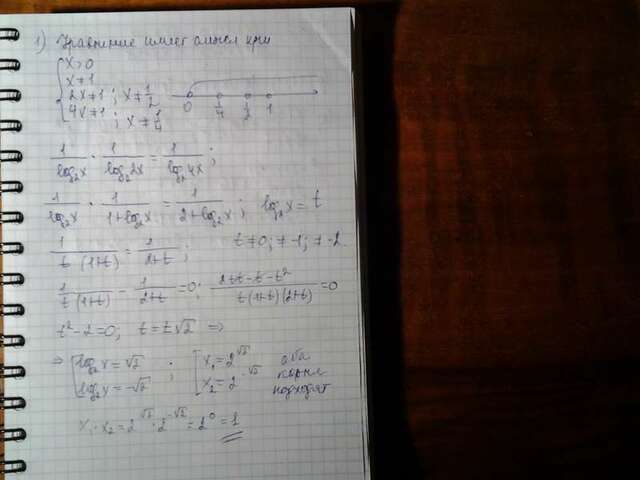 1) Уравнение имеет смысл при
{ x>0
x≠1
2x≠1 ; x≠1/2
4x≠1 ; x≠1/4
0 1/4 1/2 1
1/log₂x · 1/log₂2x = 1/log₂4x ;
1/log₂x · 1/(1+log₂x) = 1/(2+log₂x) ; log₂x = t
1/(t(1+t)) = 1/(2+t) ; t≠0; ≠-1; ≠-2.
1/(t(1+t)) - 1/(2+t) = 0; (2+t-t-t²)/(t(1+t)(2+t)) = 0
t²-2=0; t=±√2 ⇒
⇒ [ log₂x = √2 ; [ x₁=2^√2 оба
log₂x = -√2 x₂=2^-√2 корня
подходят
x₁·x₂ = 2^√2 · 2^-√2 = 2⁰ = 1